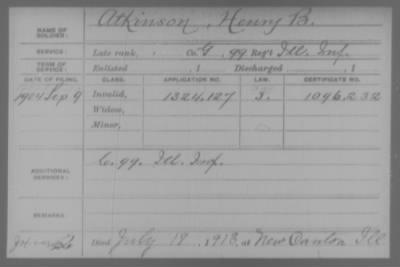 NAME OF SOLDIER: Atkinson, Henry B.
SERVICE: Late rank, , Co. G, 99 Reg't Ill. Inf.
TERM OF SERVICE: Enlisted , 1 Discharged , 1
DATE OF FILING. CLASS. APPLICATION NO. LAW. CERTIFICATE NO.
1904 Sep 9 Invalid, 1324,127 1096,232
Widow,
Minor,
ADDITIONAL SERVICES: Ill. Inf.
REMARKS:
Died July 19, 1913, at New Canton Ill